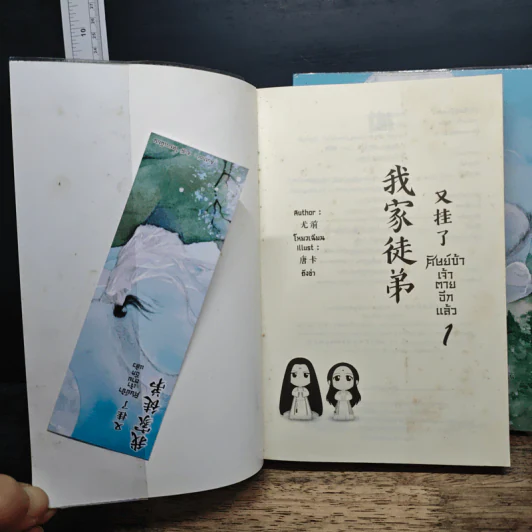 我家徒弟
又挂了
ศิษย์ข้า
เจ้า
ตาย
อีก
แล้ว
1
Author :
尤前
โหมวเฉียน
Illust :
唐卡
ถังข่า
我家徒弟
又挂了
ศิษย์ข้า
เจ้าตาย
อีกแล้ว